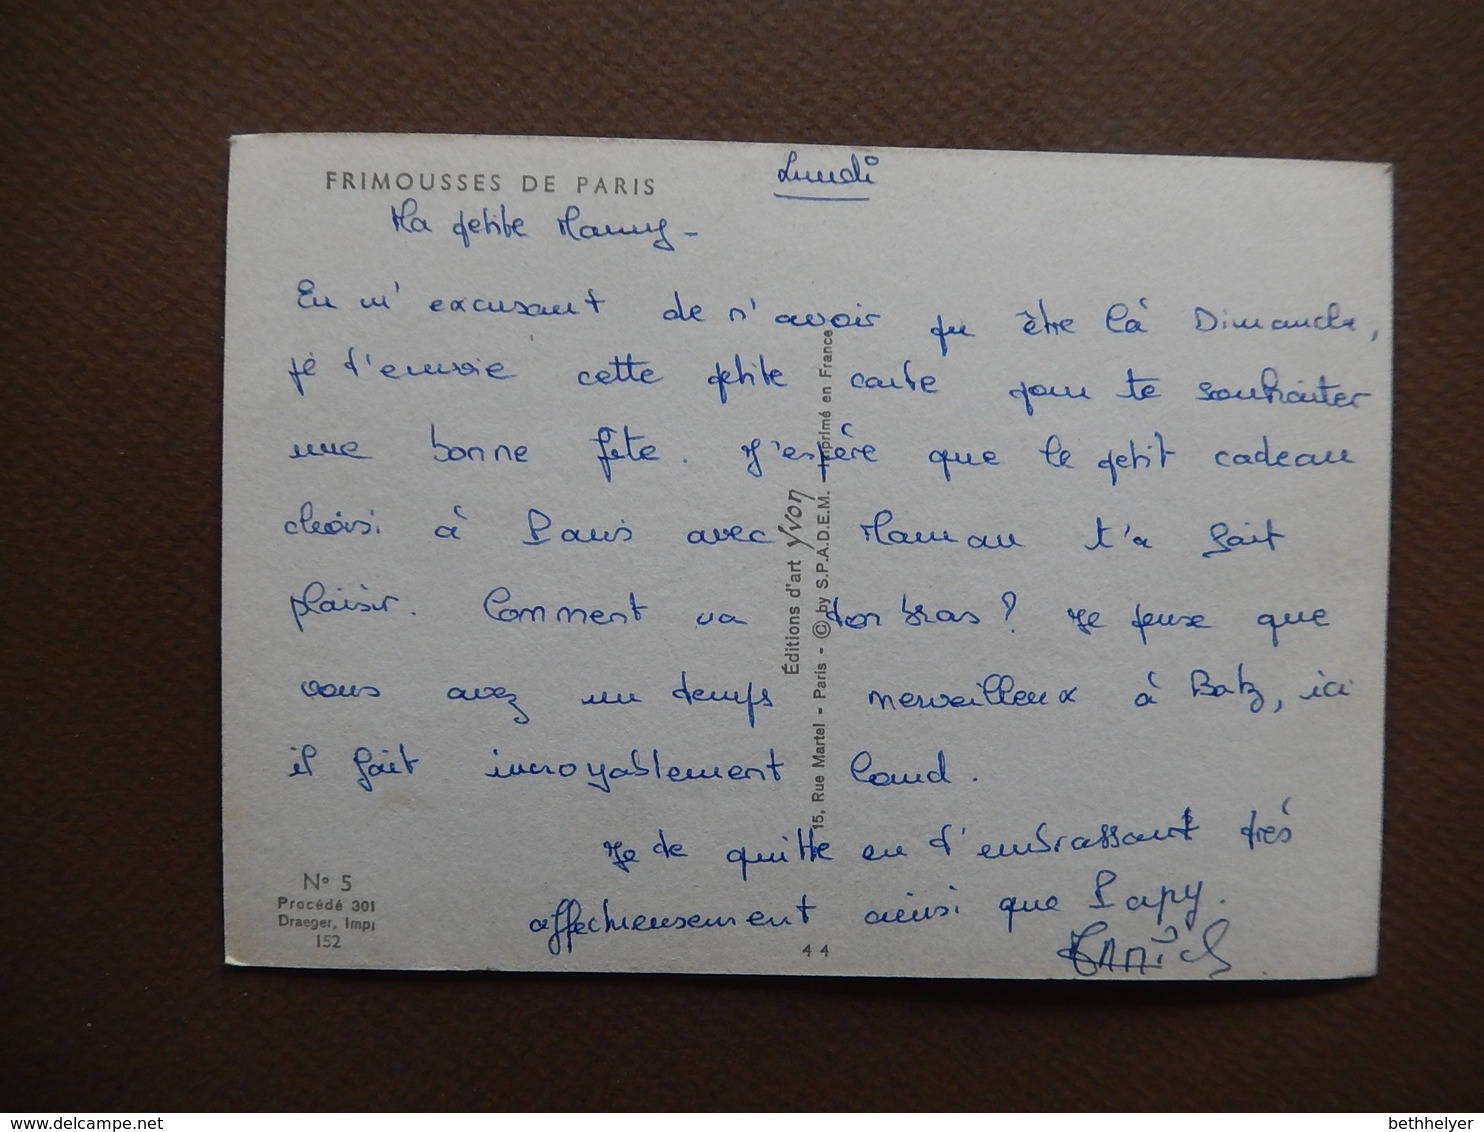 FRIMOUSSES DE PARIS
Lundi
Ma petite Mamy -
En m'excusant de n'avoir pu être là Dimanche,
je t'envoie cette petite carte pour te souhaiter
une bonne fête. J'espère que le petit cadeau
choisi à Paris avec Maman t'a fait
plaisir. Comment va ton bras ? Je pense que
vous avez un temps merveilleux à Batz, ici
il fait incroyablement lourd.
Je te quitte en t'embrassant très
affectueusement ainsi que Papy.
Éditions d'art Yvon
15, Rue Martel - Paris - © by S.P.A.D.E.M. Imprimé en France
N° 5
Procédé 301
Draeger, Imp.
152
44
bethhelyer